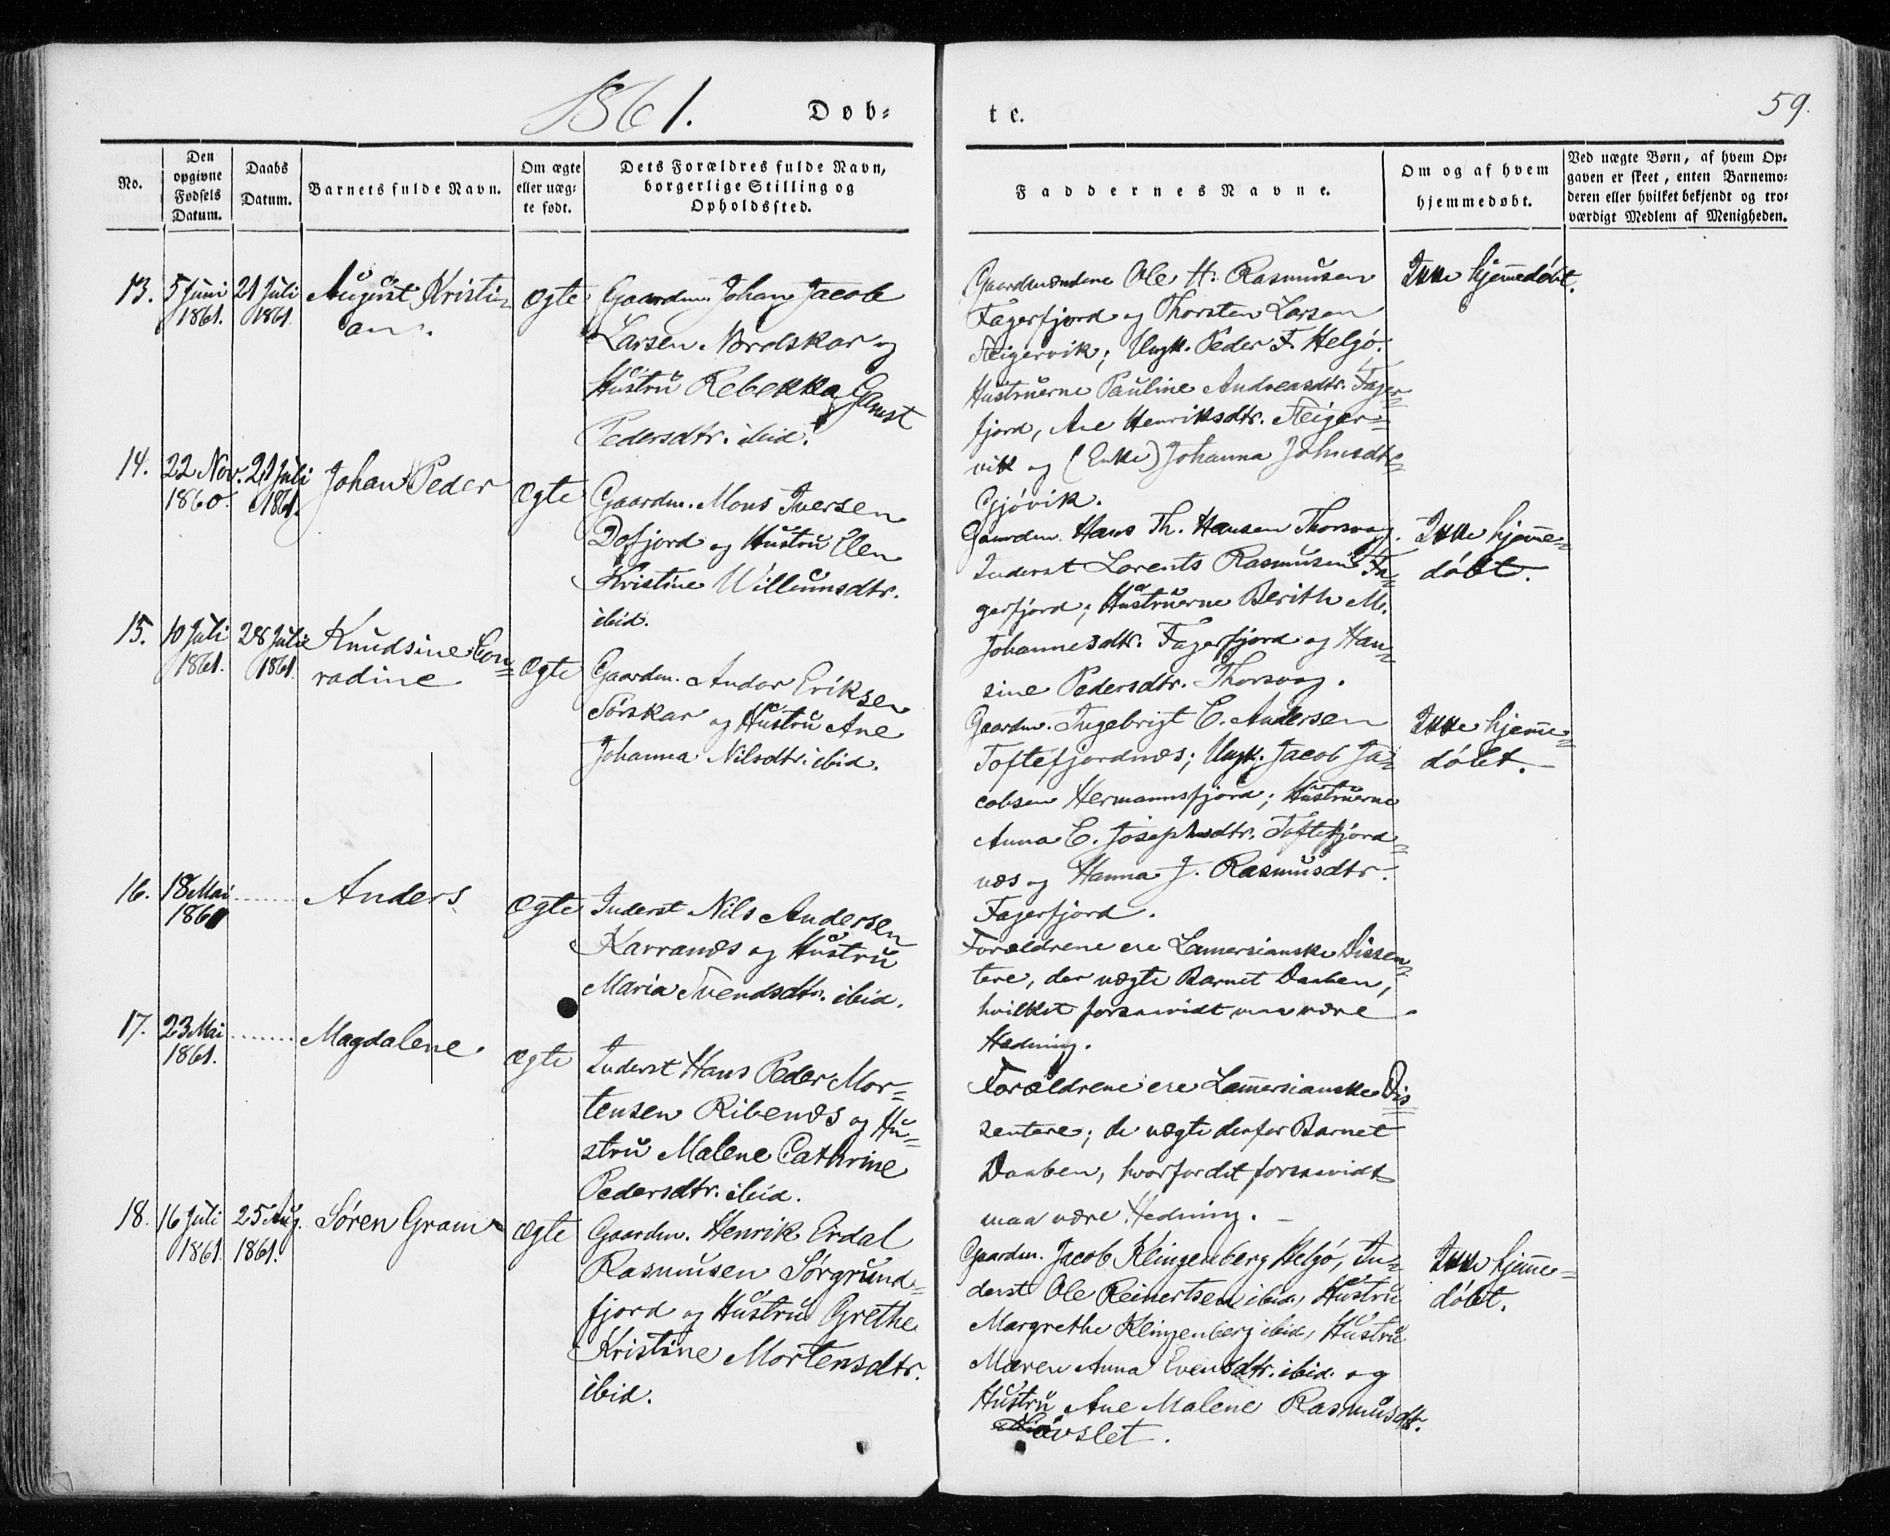 1861.
Døb-
te.
59.
No.
Den
opgivne
Fødsels
Datum.
Daabs
Datum.
Barnets fulde Navn.
Om ægte
eller uæg-
te født.
Dets Forældres fulde Navn,
borgerlige Stilling og
Opholdssted.
Faddernes Navne.
Om og af hvem
hjemmedøbt.
Ved uægte Børn, af hvem Op-
gaven er skeet, enten Barnemo-
deren eller hvilket bekjendt og tro-
værdigt Medlem af Menigheden.
13.
5 Juni
1861.
21 Juli
1861.
August Kristi-
an.
Ægte
Gaardm. Johan Jacob
Larsen Nordskar og
Hustru Rebekka Gamst
Pedersdtr. ibid.
Gaardmændene Ole H. Rasmusen
Fagerfjord og Thorsten Larsen
Reigervik; Ungk. Peder F. Helgø.
Hustruerne Pauline Andreasdtr. Fager-
fjord, Ane Henriksdtr. Reiger-
vik og (Enke) Johanna Johnsdtr
Gjøvik.
Ikke hjemedøbt.
14.
22 Nov.
1860.
21 Juli
1861.
Johan Peder
Ægte
Gaardm. Mons Iversen
Dofjord og Hustru Elen
Kristine Willumsdtr.
ibid.
Gaardm. Hans Th. Hansen Thorsvag.
Inderst Lorents Rasmusen Fa-
gerfjord; Hustruerne Berith M.
Johannesdtr. Fagerfjord og Han-
sine Pedersdtr. Thorsvag.
Ikke hjeme-
døbt.
15.
10 Juli
1861.
28 Juli
1861.
Knudsine Con-
radine
Ægte
Gaardm. Andor Eriksen
Sørskar og Hustru Ane
Johanna Nilsdtr. ibid.
Gaardm. Ingebrigt E. Andersen
Toftefjordnæs; Ungk. Jacob Ja-
cobsen Hermannsfjord; Hustruerne
Anna E. Josephsdtr. Toftefjord-
næs og Hanna J. Rasmusdtr.
Fagerfjord.
Ikke hjeme-
døbt.
16.
18 Mai
1861
Anders
Ægte
Inderst Nils Andersen
Karranæs og Hustru
Maria Svendsdtr. ibid.
Forældrene ere Lamersianske Dissen-
tere, der nægte Barnet Daaben,
hvilket forsaavidt maa være
Hedning.
17.
23 Mai
1861.
Magdalene
Ægte
Inderst Hans Peder Mor-
tensen Ribenæs og Hu-
stru Malene Cathrine
Pedersdtr. ibid.
Forældrene ere Lamersianske Dis
sentere; de nægte derfor Barnet
Daaben, hvorfor det forsaavidt
maa være Hedning.
18.
16 Juli
1861.
25 Aug.
1861.
Søren Gram
Ægte
Gaardm. Henrik Erdal
Rasmusen Sørgrund-
fjord og Hustru Grethe
Kristine Mortensdtr.
ibid.
Gaardm. Jacob Klingenberg Helgø, In-
derst Ole Reinertsen ibid, Hustru
Margrethe Klingenberg ibid, Hustru
Maren Anna Evensdtr. ibid. og
Hustru Ane Malene Rasmusdtr.
Navslet.
Ikke hjeme-
døbt.